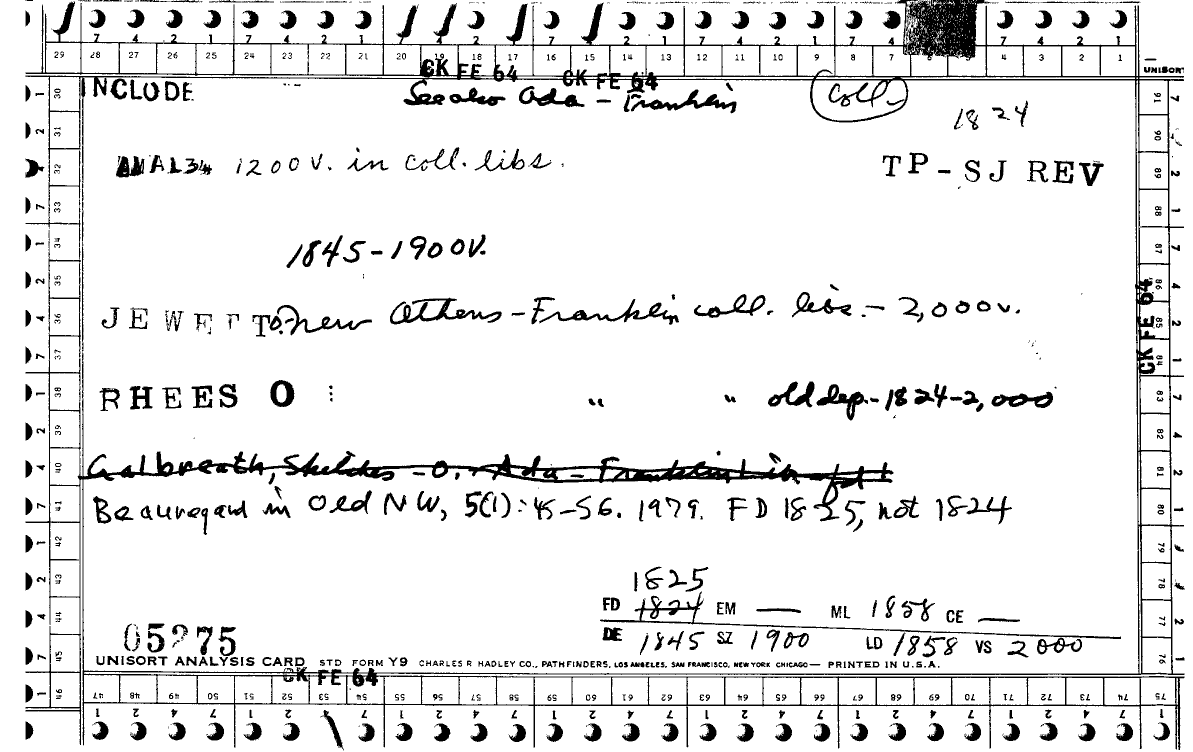 7 4 2 1 7 4 2 1 7 4 2 1 7 4 2 1 7 4 2 1 7 4 4 2 1
29 28 27 26 25 24 23 22 21 20 19 18 17 16 15 14 13 12 11 10 9 8 7 4 3 2 1
CK FE 64 CK FE 64
UNISORT
INCLUDE See also Ada - Franklin coll.
1824
ANAL34 1200V. in coll. libs.
TP-SJ REV
1845-1900V.
CK FE 64
JEWETT O. New Athens-Franklin coll. libs. - 2,000v.
RHEES O : " " old dep.-1824-2,000
Galbreath, Sketches - O. - Ada - Franklin
Beauregard in Old NW, 5(1): 45-56. 1979. FD 1825, not 1824
1825
FD 1824 EM — ML 1858 CE —
DE 1845 SZ 1900 LD 1858 VS 2000
05275
UNISORT ANALYSIS CARD STD FORM Y9 CHARLES R HADLEY CO., PATHFINDERS, LOS ANGELES, SAN FRANCISCO, NEW YORK CHICAGO— PRINTED IN U.S.A.
CK FE 64
47 48 49 50 51 52 53 54 55 56 57 58 59 60 61 62 63 64 65 66 67 68 69 70 71 72 73 74 75
1 2 4 7 1 2 4 7 1 2 4 7 1 2 4 7 1 2 4 7 1 2 4 7 1 2 4 7 1